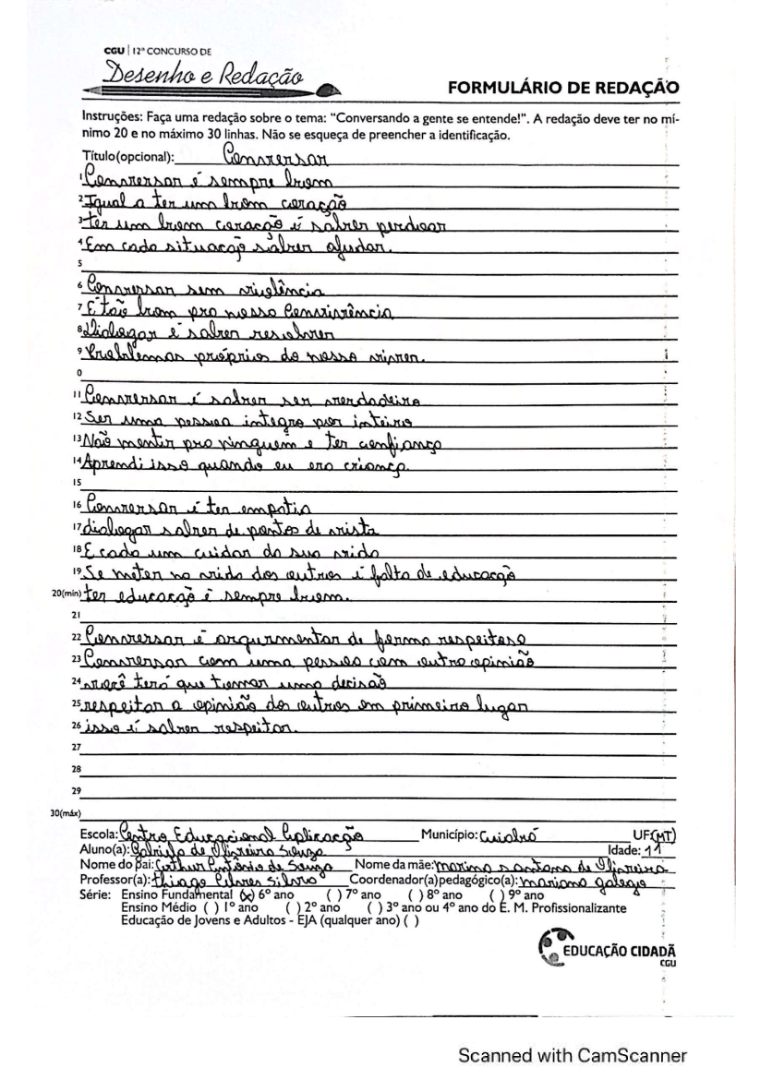 CGU | 12º CONCURSO DE
Desenho e Redação
FORMULÁRIO DE REDAÇÃO
Instruções: Faça uma redação sobre o tema: "Conversando a gente se entende!". A redação deve ter no mí-
nimo 20 e no máximo 30 linhas. Não se esqueça de preencher a identificação.
Título(opcional): Conversar
1 Conversar é sempre bom
2 Igual a ter um bom coração
3 ter um bom coração é sabrer perdoar
4 Em cada situação saber ajudar.
5
6 Conversar sem violência
7 É tão bom pra nossa Convivência
8 Dialogar é saber resolver
9 Problemas próprios do nosso viver.
0
11 Conversar é saber ser verdadeiro
12 Ser uma pessoa integra por inteiro
13 Não mentir pra ninguem e ter confiança
14 Aprendi isso quando eu era criança.
15
16 Conversar é ter empatia
17 dialogar saber de pontos de vista
18 E cada um cuidar da sua vida
19 Se meter na vida dos outros é falta de educação
20(mín) ter educação é sempre bom.
21
22 Conversar é argurmentar de forma respeitosa
23 Conversar com uma pessoa com outra opinião
24 você terá que tomar uma decisão
25 respeitar a opinião dos outros em primeiro lugar
26 isso é saber respeitar.
27
28
29
30(máx)
Escola: Centro Educacional Aplicação Município: Cuiabá UF(MT)
Aluno(a): Gabriela de Oliveira Souza Idade: 11
Nome do pai: Arthur Antônio de Souza Nome da mãe: marina santana de Oliveira
Professor(a): Thiago Silva Coordenador(a)pedagógico(a): mariana galego
Série: Ensino Fundamental (x) 6º ano ( ) 7º ano ( ) 8º ano ( ) 9º ano
Ensino Médio ( ) 1º ano ( ) 2º ano ( ) 3º ano ou 4º ano do E. M. Profissionalizante
Educação de Jovens e Adultos - EJA (qualquer ano) ( )
EDUCAÇÃO CIDADÃ
CGU
Scanned with CamScanner